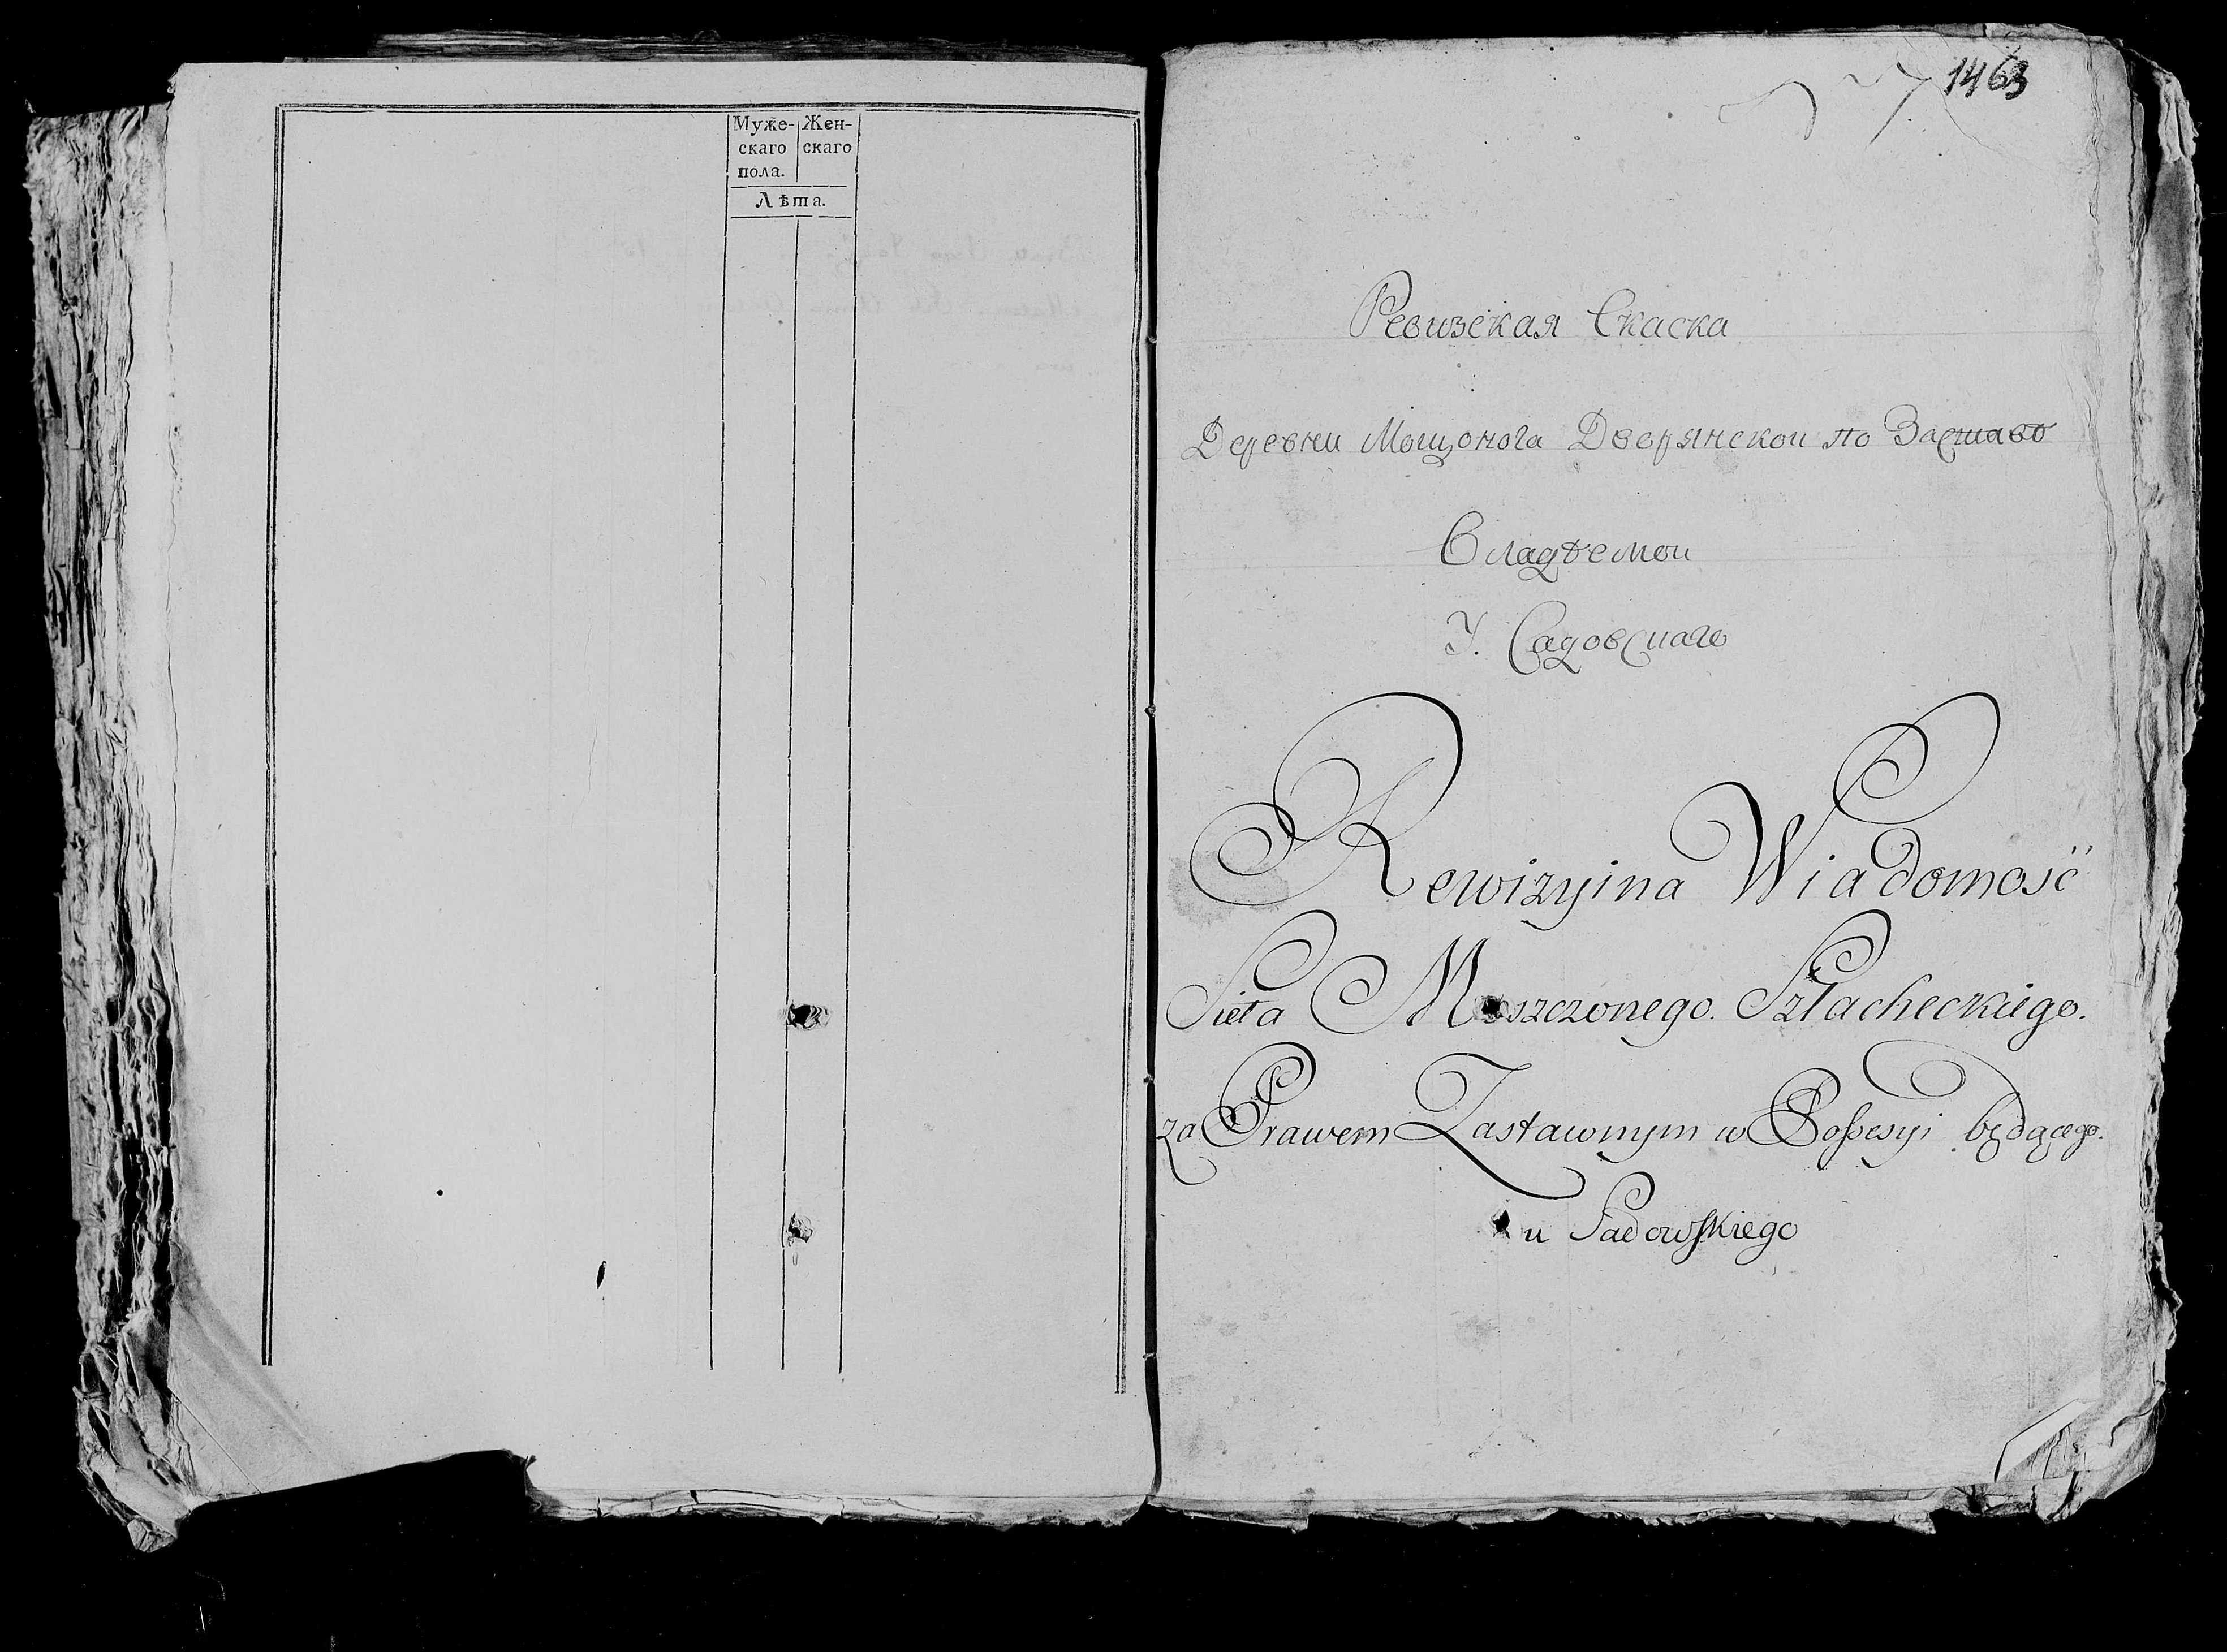 Муже- Жен-
скаго скаго
пола.
Лѣта.
1463
Ревизская Скаска
Деревни Мощонога Дворянскои по Заставѣ
Владѣемои
У. Садовскаго
Rewizyina Wiadomość
Sieła Moszczonego. Szlacheckiego.
za Prawem Zastawnym w Possesyi będącego.
u Sadowskiego